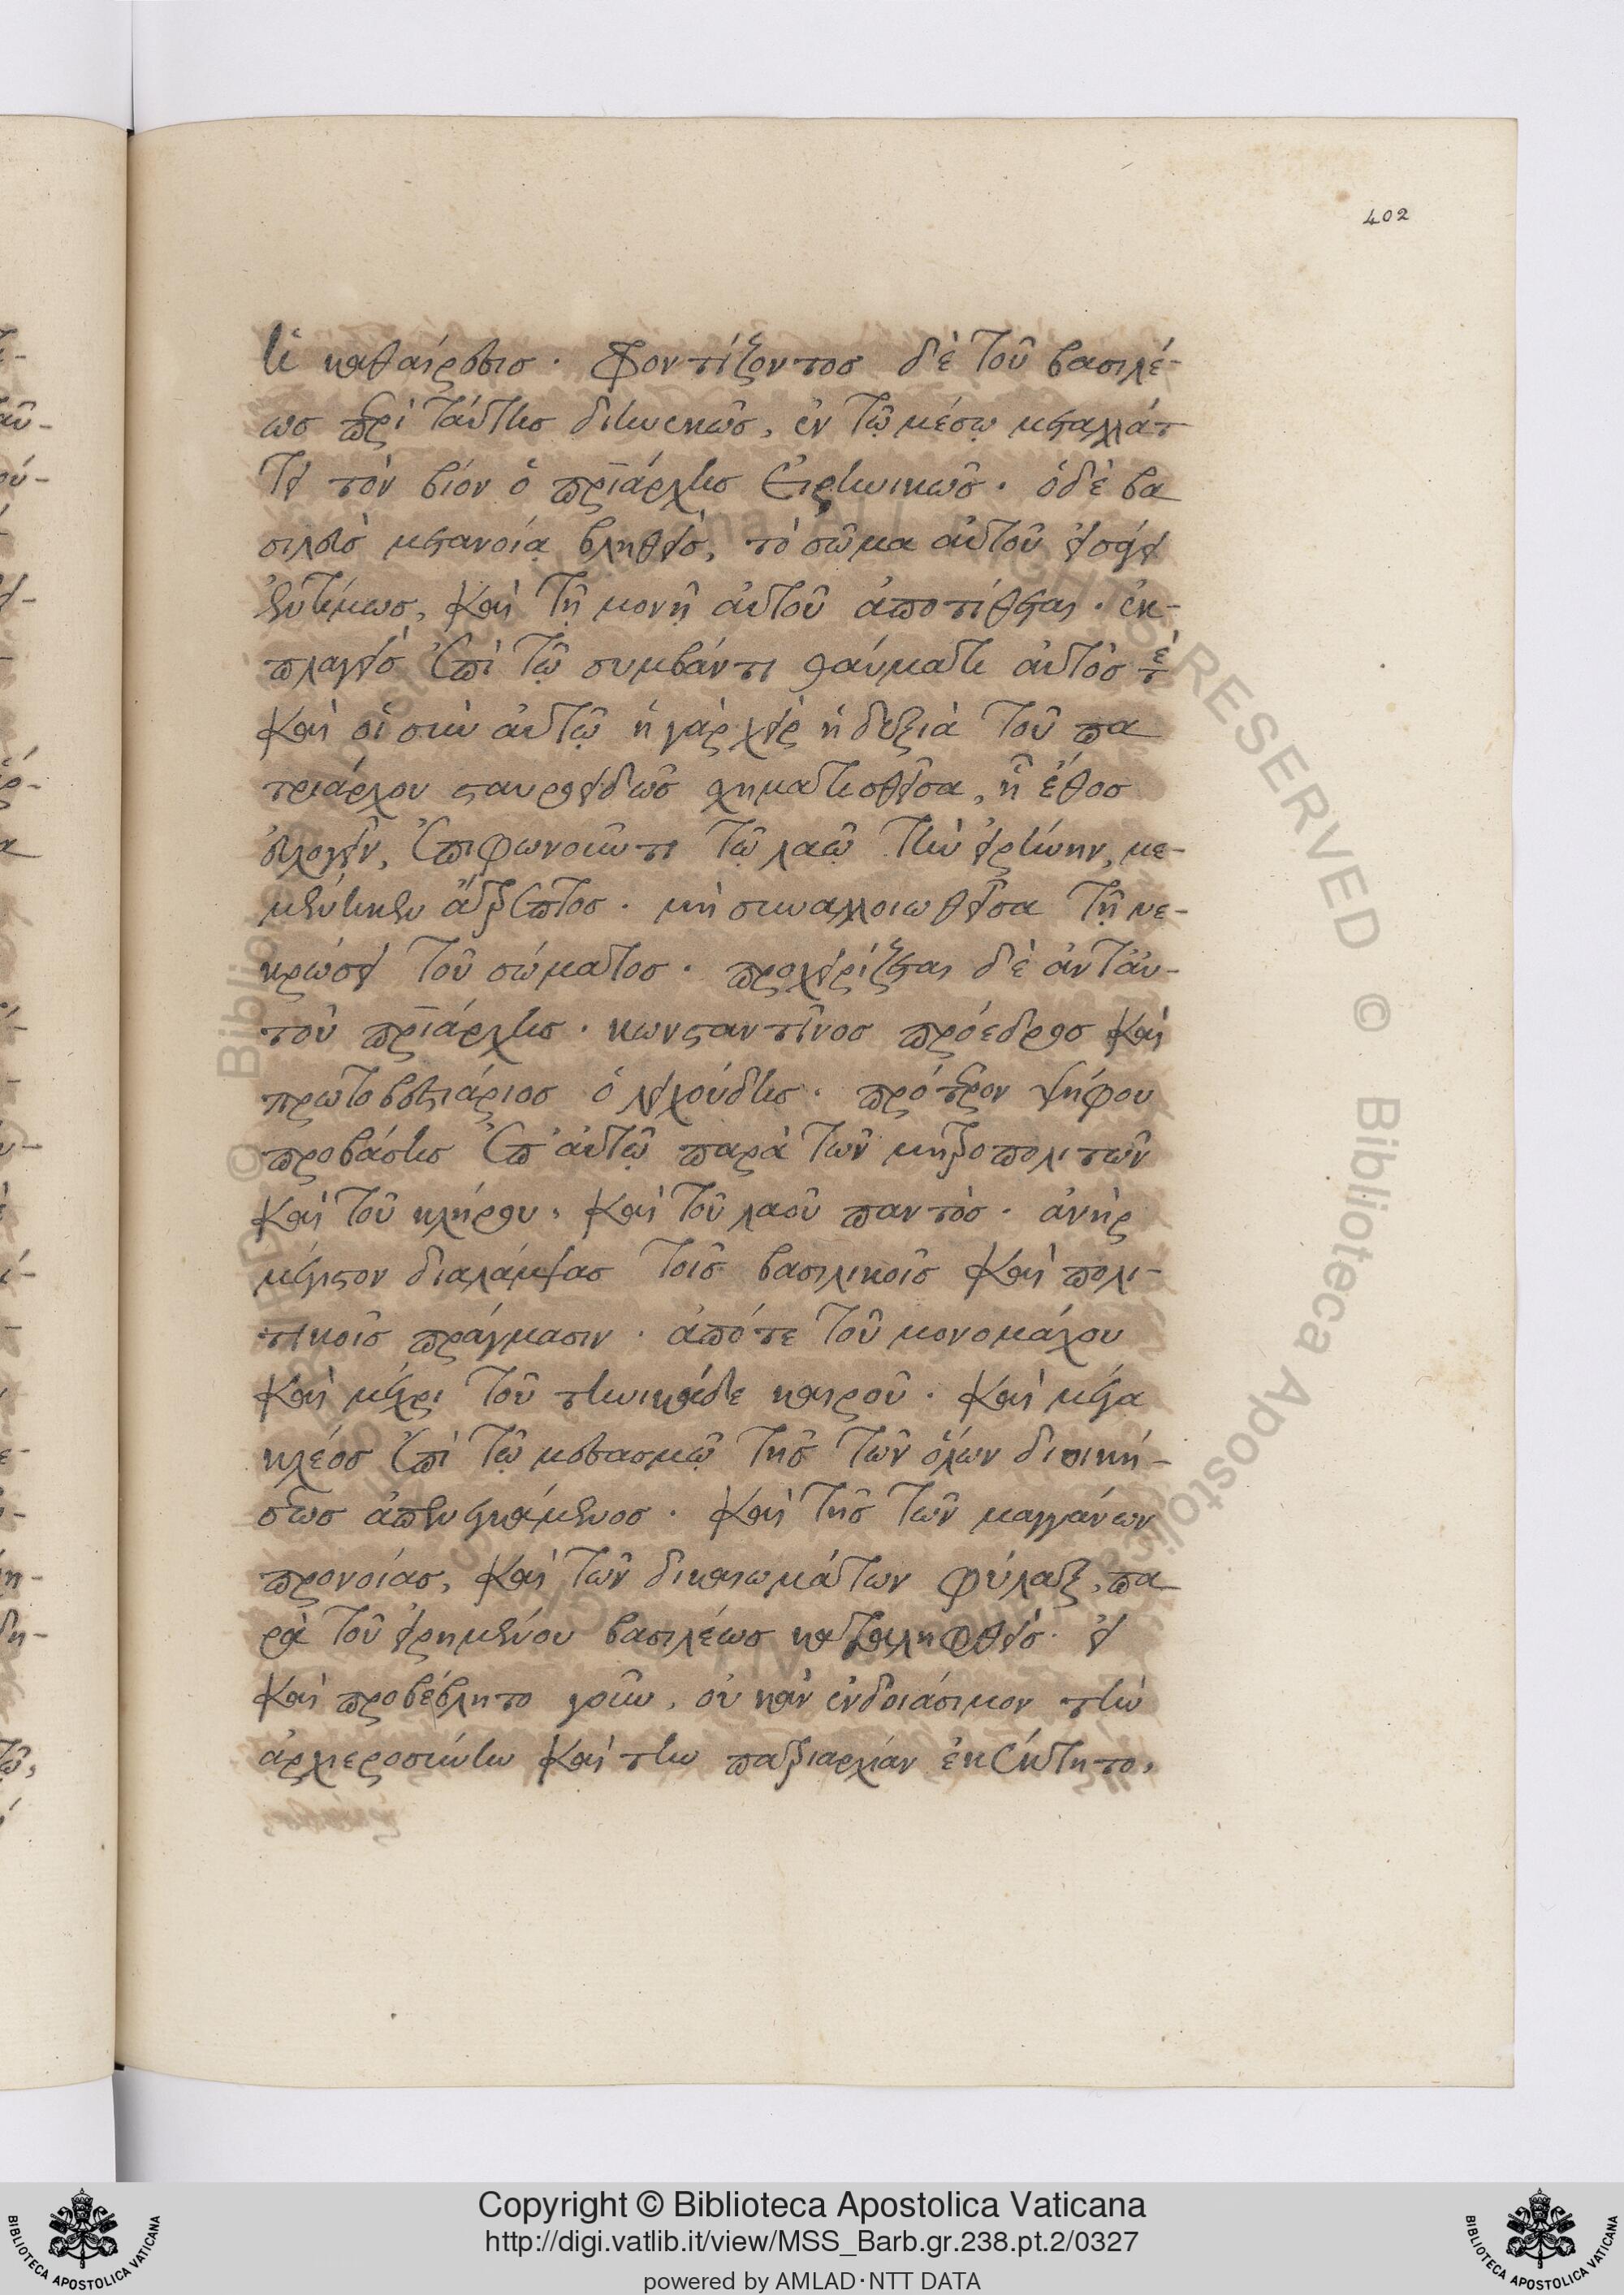 402
ἡ καθαίρεσις. Φροντίζοντος δὲ τοῦ βασιλέ-
ως περὶ ταύτης διηνεκῶς, ἐν τῷ μέσῳ μεταλλάτ
τει τὸν βίον ὁ πριάρχης εἰρηνικῶς. ὁ δὲ βα
σιλεὺς μετανοίᾳ βληθεὶς, τὸ σῶμα αὐτοῦ εἰσάγει
ἐντίμως, καὶ τῇ μονῇ αὐτοῦ ἀποτίθεται. ἐκ-
πλαγεὶς ἐπὶ τῷ συμβάντι θαύματι αὐτός τὲ
καὶ οἱ σὺν αὐτῷ ἡ γὰρ χεὶρ ἡ δεξιὰ τοῦ πα
τριάρχου σταυροειδῶς σχηματισθεῖσα, ᾗ ἔθος
εὐλογεῖν, ἐπιφωνοῦντι τῷ λαῷ τὴν εἰρήνην, με-
μένηκεν ἄτρεπτος. μὴ συναλλοιωθεῖσα τῇ νε-
κρώσει τοῦ σώματος. προχειρίζεται δὲ ἀντ' αὐ-
τοῦ πριάρχης. κωνσταντῖνος πρόεδρος καὶ
πρωτοβεστιάριος ὁ λειχούδης. πρότερον ψήφου
προβάσης ἐπ' αὐτῷ παρὰ τῶν μητροπολιτῶν
καὶ τοῦ κλήρου, καὶ τοῦ λαοῦ παντὸς. ἀνὴρ
μέγιστον διαλάμψας τοῖς βασιλικοῖς καὶ πολι-
τικοῖς πράγμασιν. ἀπό τε τοῦ μονομάχου
καὶ μέχρι τοῦ τηνικάδε καιροῦ. καὶ μέγα
κλέος ἐπὶ τῷ μεσασμῷ τῆς τῶν ὅλων διοική-
σεως ἀπενεγκάμενος. καὶ τῆς τῶν μαγγάνων
προνοίας, καὶ τῶν δικαιωμάτων φύλαξ, πα
ρὰ τοῦ εἰρημένου βασιλέως καταλειφθεὶς. εἰ
καὶ προβέβλητο γοῦν, οὐκ ἂν ἐνδοιάσιμον τὴν
ἀρχιεροσύνην καὶ τὴν πατριαρχίαν ἐκέκτητο,
Copyright © Biblioteca Apostolica Vaticana
http://digi.vatlib.it/view/MSS_Barb.gr.238.pt.2/0327
powered by AMLAD·NTT DATA